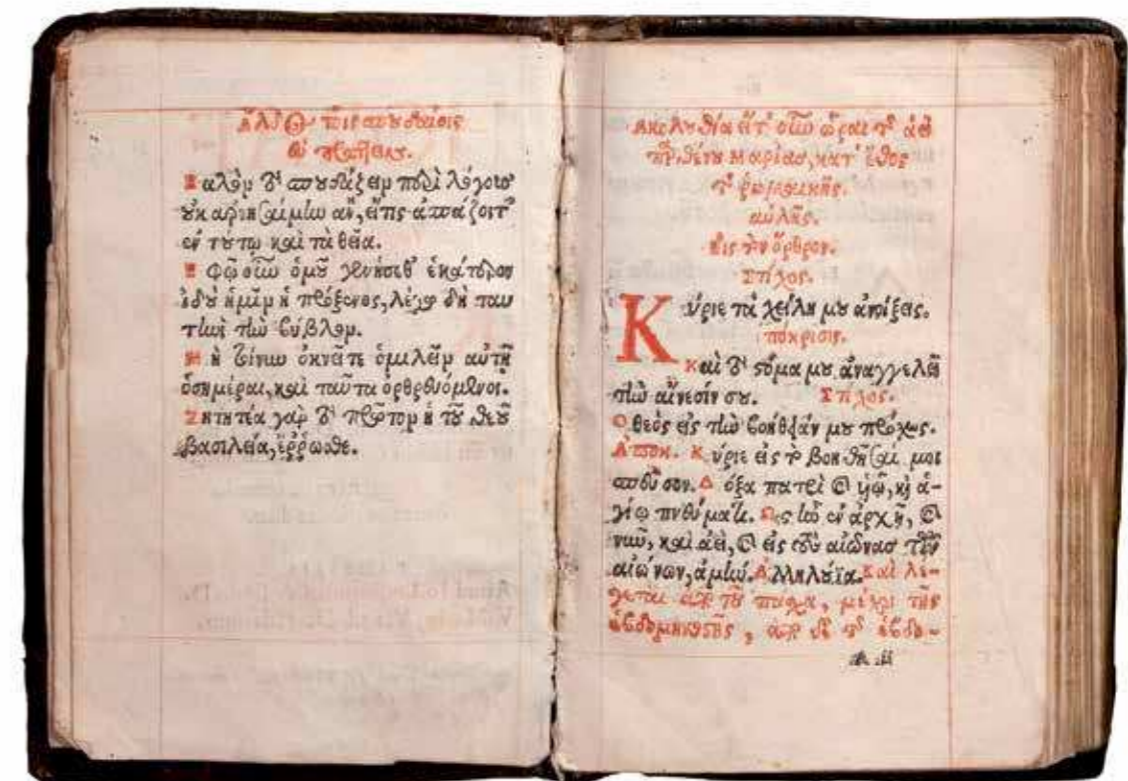 Ἄλδος τοῖς σπουδαίοις
εὖ πράττειν.
Καλὸν τὸ σπουδάζειν ποτὶ λόγοισ
οὐκ ἀρνησαίμην ἂν, εἴπερ
ἐν τούτῳ καὶ τὰ θεῖα.
ὁμοῦ
ἰδοὺ ἡμῖν ἡ πρόξενος, λέγω δὴ ταυ
τηνὶ τὴν βύβλον.
Μὴ ὀκνεῖτε ὁμιλεῖν αὐτῇ
ὁσημέραι, καὶ ταῦτα ὀρθρευόμενοι.
Ζητητέα γὰρ τὸ πρῶτον ἡ τοῦ θεοῦ
βασιλεία, ἔρρωσθε.
Ακολουθία εἴτ' οὖν ὧραι τῆς ἀει
παρθένου Μαρίασ, κατ' ἔθος
τῆς ῥωμαϊκῆς
αὐλῆς.
Εἰς τὸν ὄρθρον.
Στίχος.
Κύριε τὰ χείλη μου ἀνοίξεις.
πόκρισις.
Καὶ τὸ στόμα μου ἀναγγελεῖ
τὴν αἴνεσίν σου. Στίχος.
Ὁ θεὸς εἰς τὴν βοήθειάν μου πρόσχες.
Ἀποκ. Κύριε εἰς τὸ βοηθῆσαι μοι
σπεῦσον. Δόξα πατρὶ καὶ υἱῷ, καὶ ἁ-
γίῳ πνεύματι. Ὡς ἦν ἐν ἀρχῇ, καὶ
νῦν, καὶ ἀεὶ, καὶ εἰς τοὺς αἰῶνασ τῶν
αἰώνων, ἀμήν. Ἀλληλούϊα. Καὶ λέ-
γεται ἀπὸ τοῦ πάσχα, μέχρι τῆς
ἑβδομηκοστῆς, ἀπὸ δὲ τῆς ἑβδο-